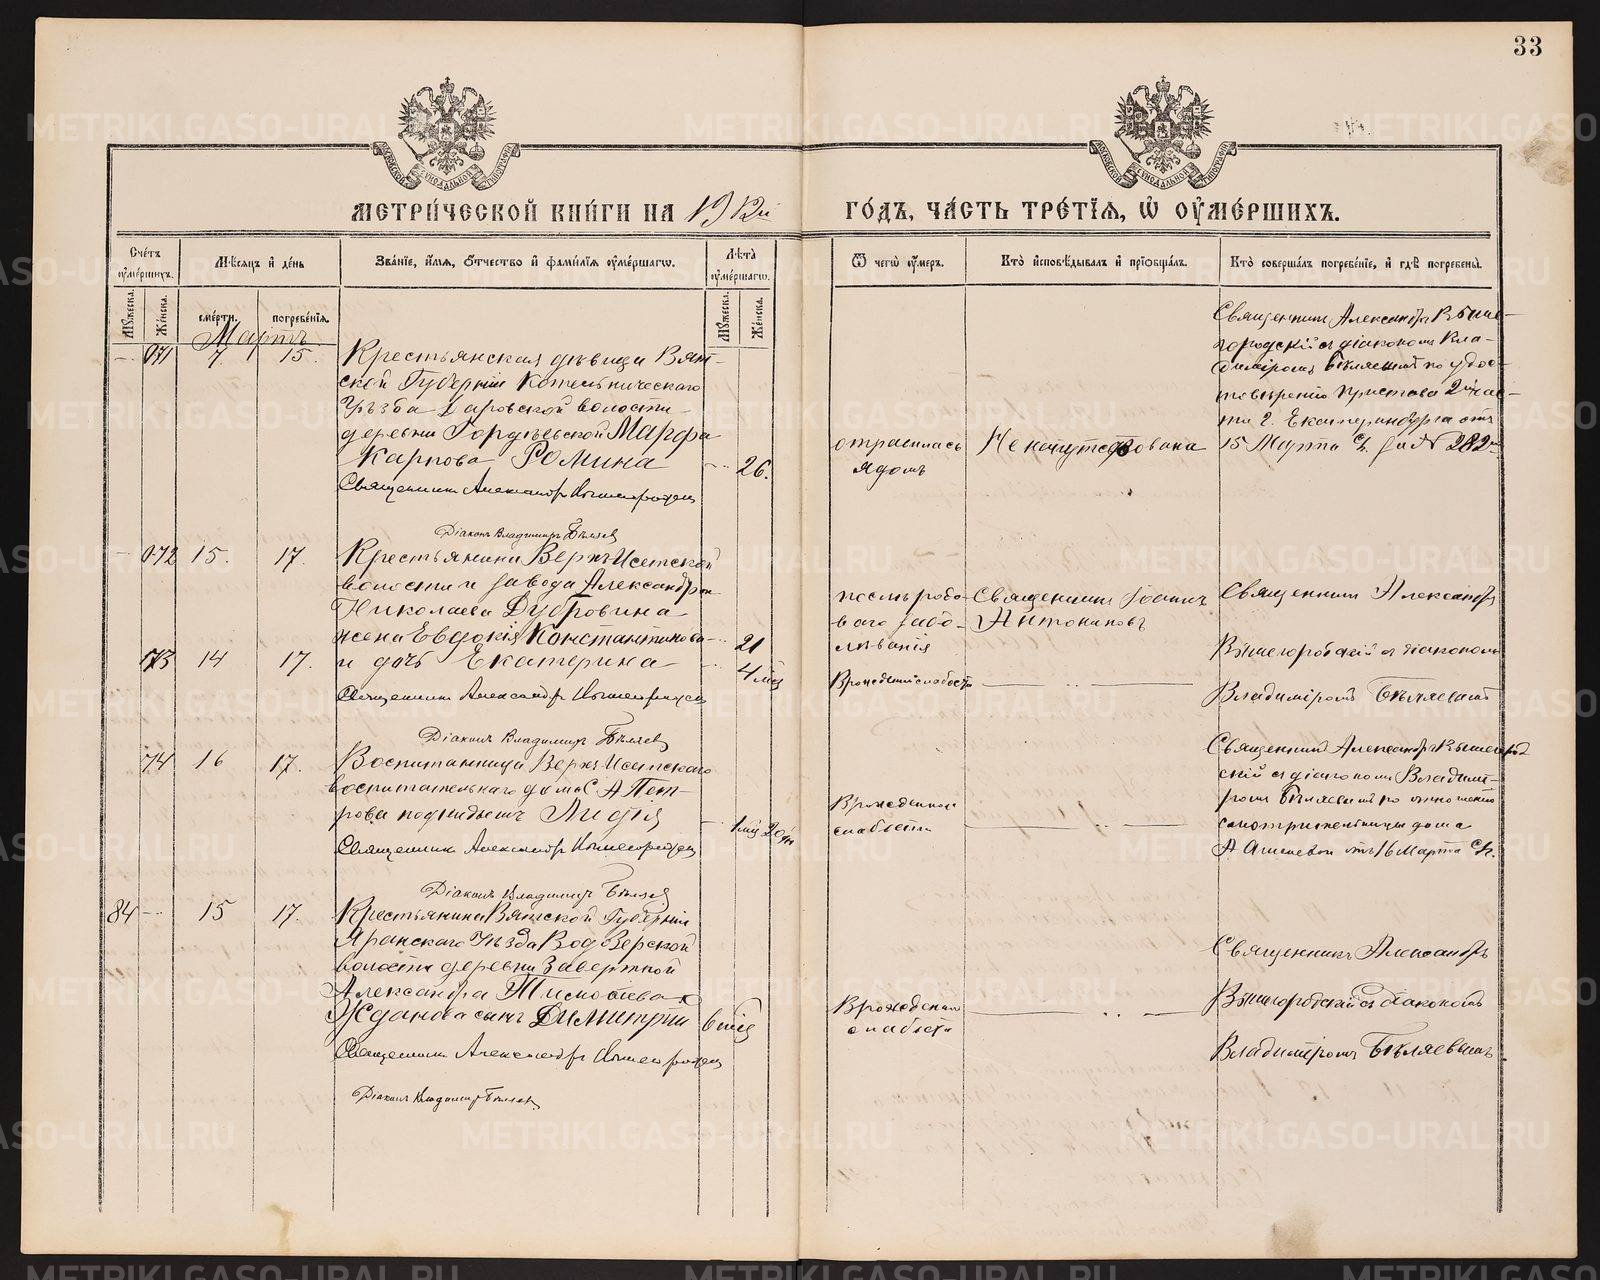 33
МЕТРИ́ЧЕСКОЙ КНИ́ГИ НА 1912й ГО́ДЪ, ЧА́СТЬ ТРЕ́ТІѦ, Ѽ ОУ҆МЕ́РШИХЪ.
Сче́тъ оу҆ме́ршихъ.
Мѣ́сѧцъ и҆ де́нь
Зва́нїе, и҆́мѧ, ѻ҆́тчество и҆ фами́лїѧ оу҆ме́ршагѡ.
Лѣ́та оу҆ме́ршагѡ.
Ѿ чегѡ̀ оу҆́меръ.
Кто̀ и҆сповѣ́дывалъ и҆ прїѡбща́лъ.
Кто̀ соверша́лъ погребе́нїе, и҆ гдѣ̀ погребены̀.
Мꙋ́жеска.
Же́нска.
сме́рти.
погребе́нїѧ.
Мꙋ́жеска.
Же́нска.
Мартъ
71 7. 15.
Крестьянская дѣвица Вят-
ской Губерніи Котельническаго
Уѣзда Даровской волости
деревни Гордѣевской Марфа
Карпова Ромина 26.
Священникъ Александръ Вышегородскій
Діаконъ Владимиръ Бѣляевъ
отравилась
ядомъ
Не напутствована
Священникъ Александръ Выше-
городскій съ діакономъ Вла-
диміромъ Бѣляевымъ по удос-
товѣренію Пристава 2й час-
ти г. Екатеринбурга отъ
15 Марта с/г. за № 282
72 15. 17.
Крестьянина Верхъ Исетской
волости и завода Александра
Николаева Дубровина
жена Евдокія Константинова 21
послѣродо-
ваго забо-
лѣванія
Священникъ Іоаннъ
Антониновъ
Священникъ Александръ
Вышегородскій съ діакономъ
Владиміромъ Бѣляевымъ
73 14 17.
и дочь Екатерина 4 мѣс
Врожденной слабости
Священникъ Александръ Вышегородскій
Діаконъ Владимиръ Бѣляевъ
74 16 17.
Воспитанница Верхъ Исетскаго
воспитательнаго дома С А Пет-
рова подкидышъ Лидія
1 мѣс 20 дн
Священникъ Александръ Вышегородскій
Діаконъ Владимиръ Бѣляевъ
Врожденной
слабости
Священникъ Александръ Вышегород
скій съ діакономъ Владимі-
ромъ Бѣляевымъ по отношенію
смотрительницы дома
отъ 16 Марта с/г.
84 15 17.
Крестьянина Вятской Губерніи
Яранскаго Уѣзда Водозерской
волости деревни Завертной
Александра Тимоѳеева
Жданова сынъ Димитрій 6 мѣс
Священникъ Александръ Вышегородскій
Діаконъ Владимиръ Бѣляевъ
Врожденной
слабости
Священникъ Александръ
Вышегородскій съ діакономъ
Владиміромъ Бѣляевымъ
METRIKI.GASO-URAL.RU